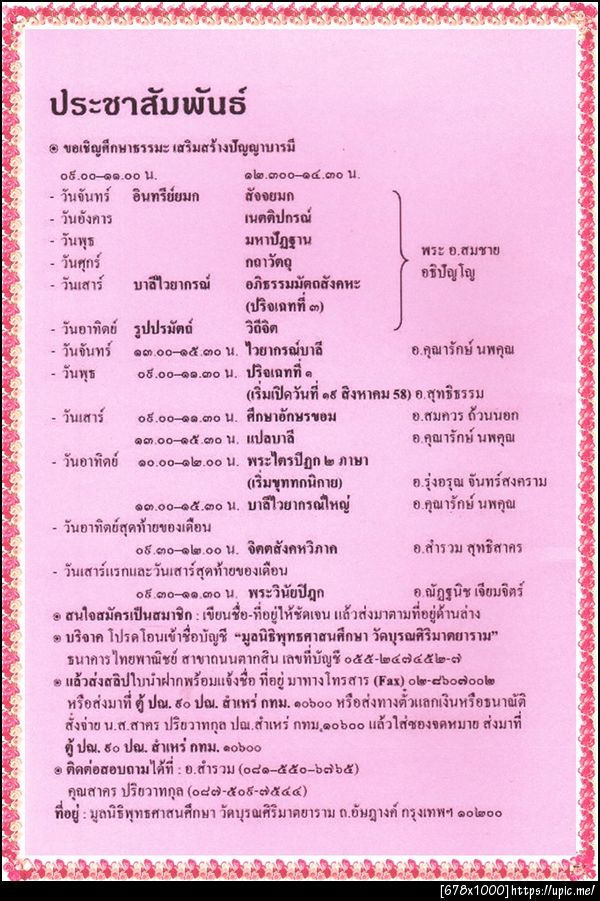 ประชาสัมพันธ์
๏ ขอเชิญศึกษาธรรมะ เสริมสร้างปัญญาบารมี
๐๙.๐๐-๑๑.๐๐ น. ๑๒.๓๐๐-๑๔.๓๐ น.
- วันจันทร์ อินทรียยมก สัจจยมก
- วันอังคาร เนตติปกรณ์
- วันพุธ มหาปัฏฐาน
พระ อ.สมชาย
- วันศุกร์ กถาวัตถุ
อธิปัญโญ
- วันเสาร์ บาลีไวยากรณ์ อภิธรรมมัตถสังคหะ
(ปริจเฉทที่ ๓)
- วันอาทิตย์ รูปปรมัตถ์ วิถีจิต
- วันจันทร์ ๑๓.๐๐-๑๕.๓๐ น. ไวยากรณ์บาลี อ.คุณารักษ์ นพคุณ
- วันพุธ ๐๙.๐๐-๑๑.๓๐ น. ปริจเฉทที่ ๑
(เริ่มเปิดวันที่ ๑๙ สิงหาคม 58) อ.สุทธิธรรม
- วันเสาร์ ๐๙.๐๐-๑๑.๓๐ น. ศึกษาอักษรขอม อ.สมควร ถ้วนนอก
๑๓.๐๐-๑๕.๓๐ น. แปลบาลี อ.คุณารักษ์ นพคุณ
- วันอาทิตย์ ๑๐.๐๐-๑๒.๐๐ น. พระไตรปิฎก ๒ ภาษา
(เริ่มขุททกนิกาย) อ.รุ่งอรุณ จันทร์สงคราม
๑๓.๐๐-๑๕.๓๐ น. บาลีไวยากรณ์ใหญ่ อ.คุณารักษ์ นพคุณ
- วันอาทิตย์สุดท้ายของเดือน
๐๙.๓๐-๑๒.๐๐ น. จิตตสังคหวิภาค อ.สำรวม สุทธิสาคร
- วันเสาร์แรกและวันเสาร์สุดท้ายของเดือน
๐๙.๓๐-๑๑.๓๐ น. พระวินัยปิฎก อ.ณัฏฐนิช เจียมจิตร์
๏ สนใจสมัครเป็นสมาชิก : เขียนชื่อ-ที่อยู่ให้ชัดเจน แล้วส่งมาตามที่อยู่ด้านล่าง
๏ บริจาค โปรดโอนเข้าชื่อบัญชี “มูลนิธิพุทธศาสนศึกษา วัดบุรณศิริมาตยาราม”
ธนาคารไทยพาณิชย์ สาขาถนนตากสิน เลขที่บัญชี ๐๕๕-๒๔๗๔๕๒-๗
๏ แล้วส่งสลิปใบนำฝากพร้อมแจ้งชื่อ ที่อยู่ มาทางโทรสาร (Fax) ๐๒-๘๖๐๗๐๐๒
หรือส่งมาที่ ตู้ ปณ. ๙๐ ปณ. สำเหร่ กทม. ๑๐๖๐๐ หรือส่งทางตั๋วแลกเงินหรือธนาณัติ
สั่งจ่าย น.ส.สาคร ปริยวาทกุล ปณ.สำเหร่ กทม.๑๐๖๐๐ แล้วใส่ซองจดหมาย ส่งมาที่
ตู้ ปณ. ๙๐ ปณ. สำเหร่ กทม. ๑๐๖๐๐
๏ ติดต่อสอบถามได้ที่ : อ.สำรวม (๐๘๑-๕๕๐-๖๗๖๕)
คุณสาคร ปริยวาทกุล (๐๘๗-๕๐๙-๗๕๔๔)
ที่อยู่ : มูลนิธิพุทธศาสนศึกษา วัดบุรณศิริมาตยาราม ถ.อัษฎางค์ กรุงเทพฯ ๑๐๒๐๐
[678x1000]https://upic.me/